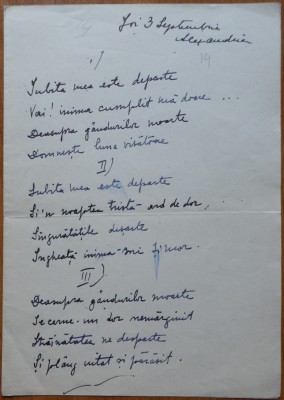 Joi 3 Septembrie
Alexandria
I)
Iubita mea este departe
Vai! inima cumplit mă doare ...
Deasupra gândurilor moarte
Domnește luna visătoare
II)
Iubita mea este departe
Și'n noaptea tristă ard de dor,
Singurătățile deșarte
Îngheață inima-mi și mor.
III)
Deasupra gândurilor moarte
Se cerne-un dor nemărginit
Străinătatea ne desparte
Și plâng uitat și părăsit.